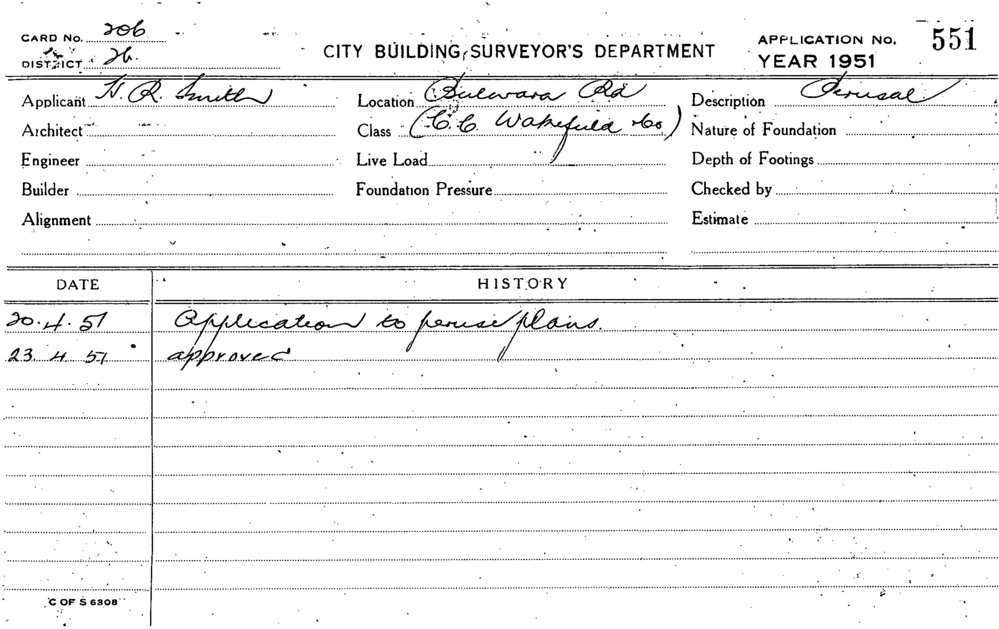 CARD No. 206
DISTRICT 26.
CITY BUILDING SURVEYOR'S DEPARTMENT
APPLICATION No. 551
YEAR 1951
Applicant H. R. Smith Location Bulwara Rd Description Perusal
Architect Class (C. C. Wakefield Co) Nature of Foundation
Engineer Live Load Depth of Footings
Builder Foundation Pressure Checked by
Alignment Estimate
DATE HISTORY
20.4.51 Application to peruse plans.
23.4.51 approved
C OF S 6308